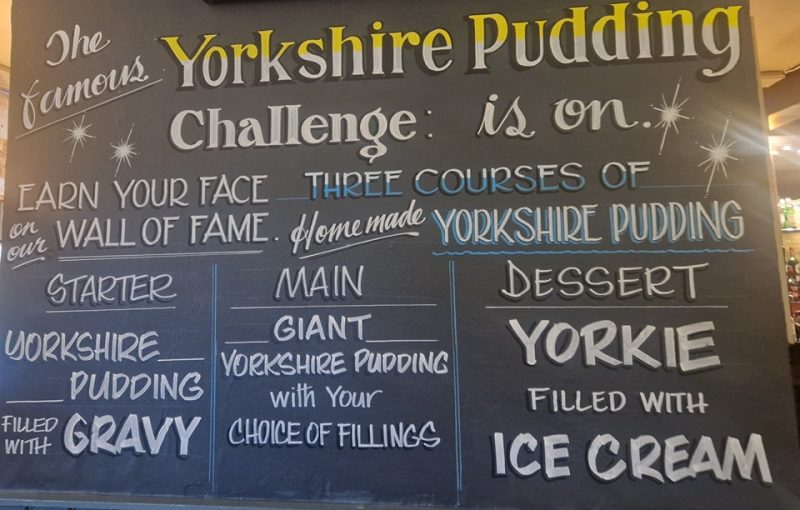 The famous Yorkshire Pudding
Challenge: is on.
EARN YOUR FACE
on our WALL OF FAME.
THREE COURSES OF
Homemade YORKSHIRE PUDDING
STARTER
YORKSHIRE
PUDDING
FILLED WITH GRAVY
MAIN
GIANT
YORKSHIRE PUDDING
with Your
CHOICE OF FILLINGS
DESSERT
YORKIE
FILLED WITH
ICE CREAM